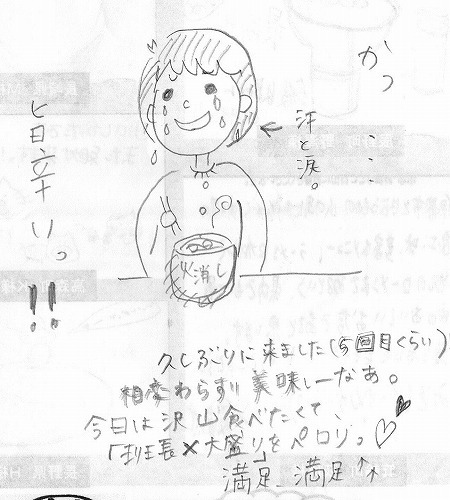 かっ……
汗と涙。
旨辛いっ!!
火消し
久しぶりに来ました(5回目くらい)
相変わらず 美味しーなぁ。
今日は沢山食べたくて、
×大盛り」をペロリっ♡♥
満足、満足